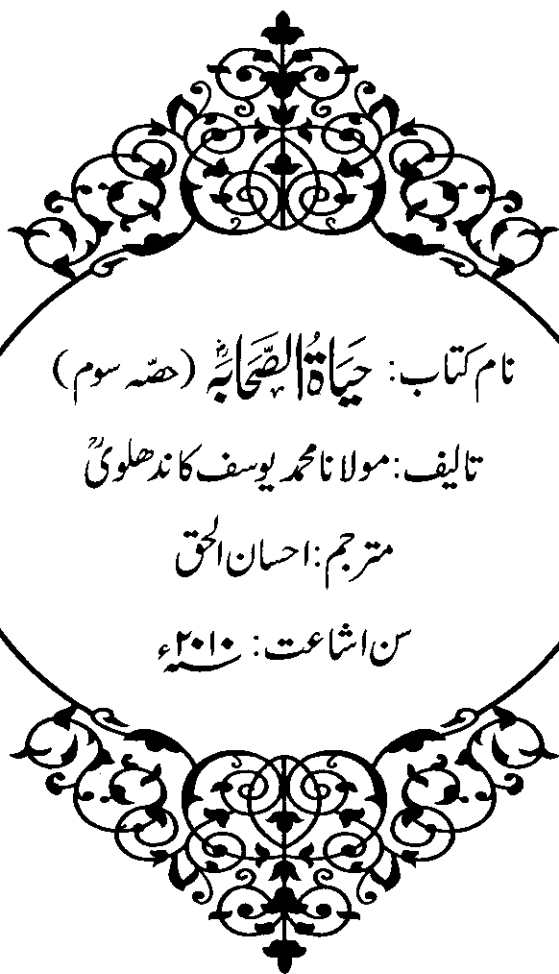 نام کتاب: حَیَاةُ الصَّحَابَہؓ (حصّہ سوم)
تالیف: مولانا محمد یوسف کاندھلویؒ
مترجم: احسان الحق
سن اشاعت: ۲۰۱۰؁ء